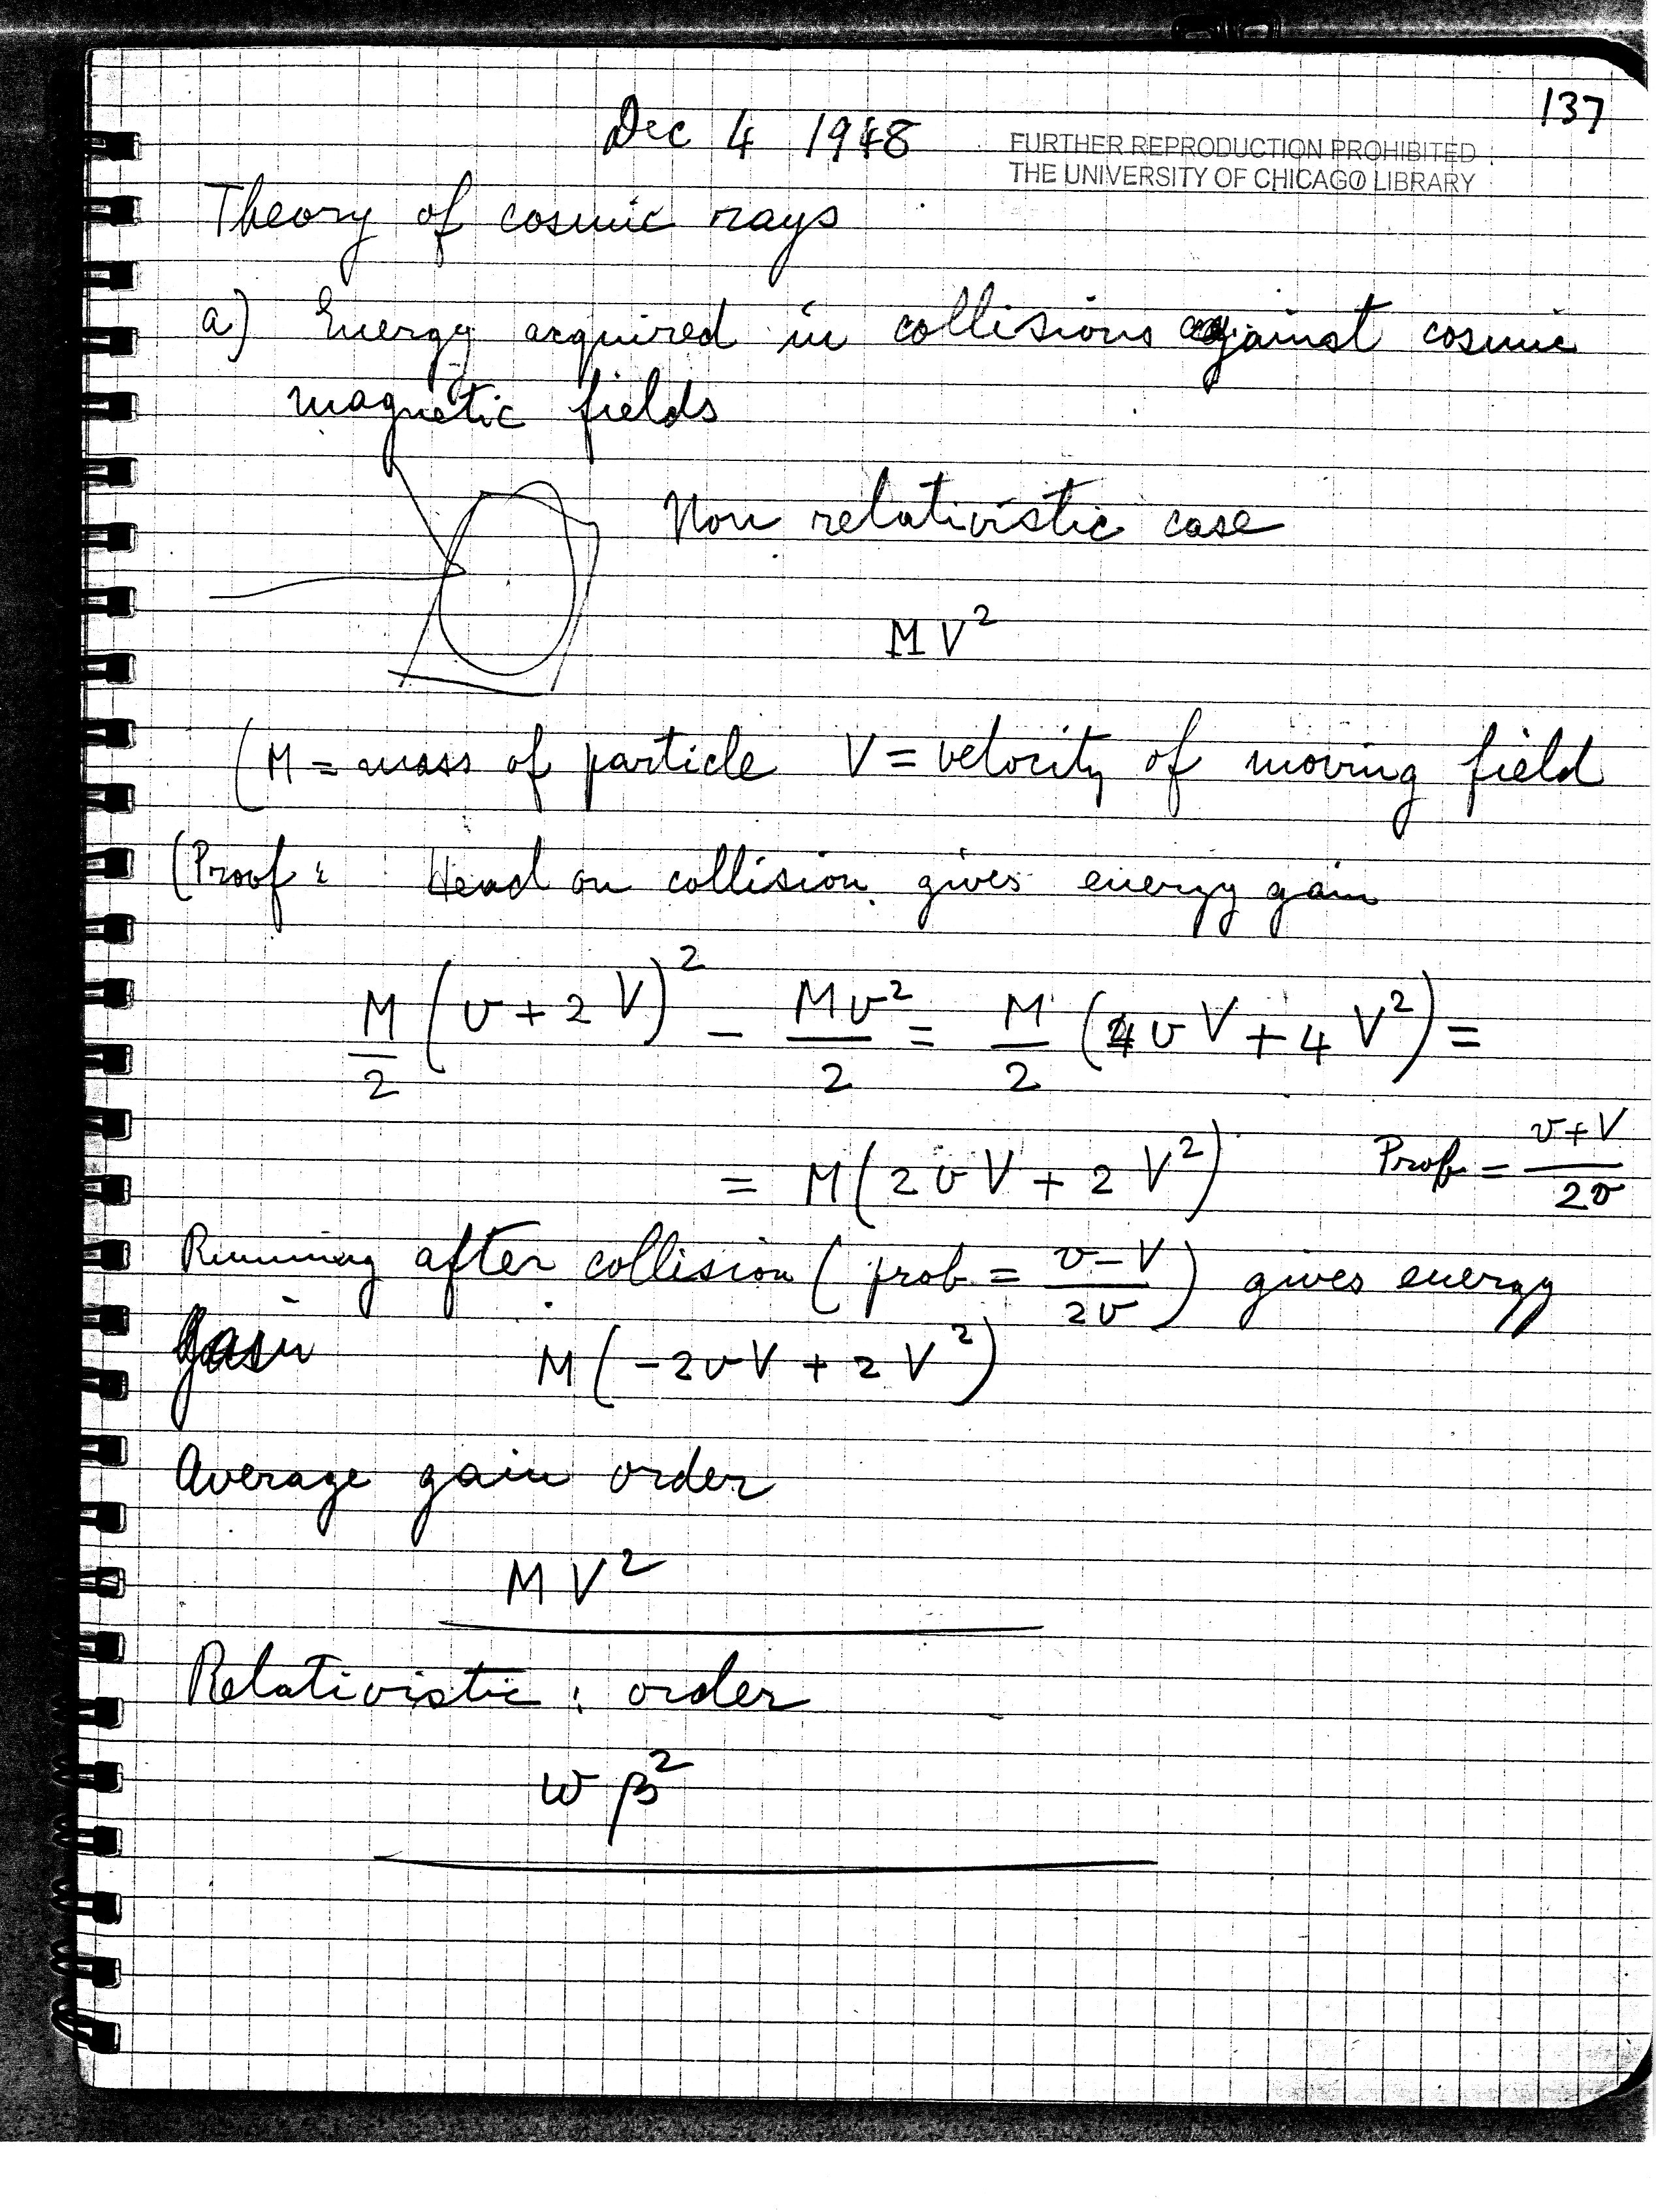 137
Dec 4 1948
FURTHER REPRODUCTION PROHIBITED
THE UNIVERSITY OF CHICAGO LIBRARY
Theory of cosmic rays
a) Energy acquired in collisions against cosmic
magnetic fields
Non relativistic case
MV²
(M = mass of particle V = velocity of moving field
(Proof: Head on collision gives energy gain
M/2 (v + 2V)² - Mv²/2 = M/2 (4vV + 4V²) =
= M(2vV + 2V²) Prob = (v+V)/2v
Running after collision (prob = (v-V)/2v) gives energy
gain M(-2vV + 2V²)
Average gain order
MV²
Relativistic: order
wβ²